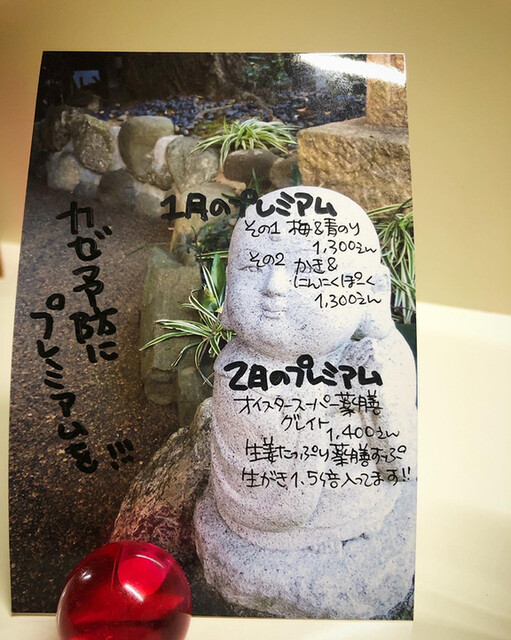 カゼ予防に
プレミアムを!!!
1月のプレミアム
その1 梅&青のり
1,300えん
その2 かき&
にんにくぽーく
1,300えん
2月のプレミアム
オイスタースーパー薬膳
グレイト
1,400えん
生姜たっぷり薬膳すーぷ
生がき1.5倍入ってます!!